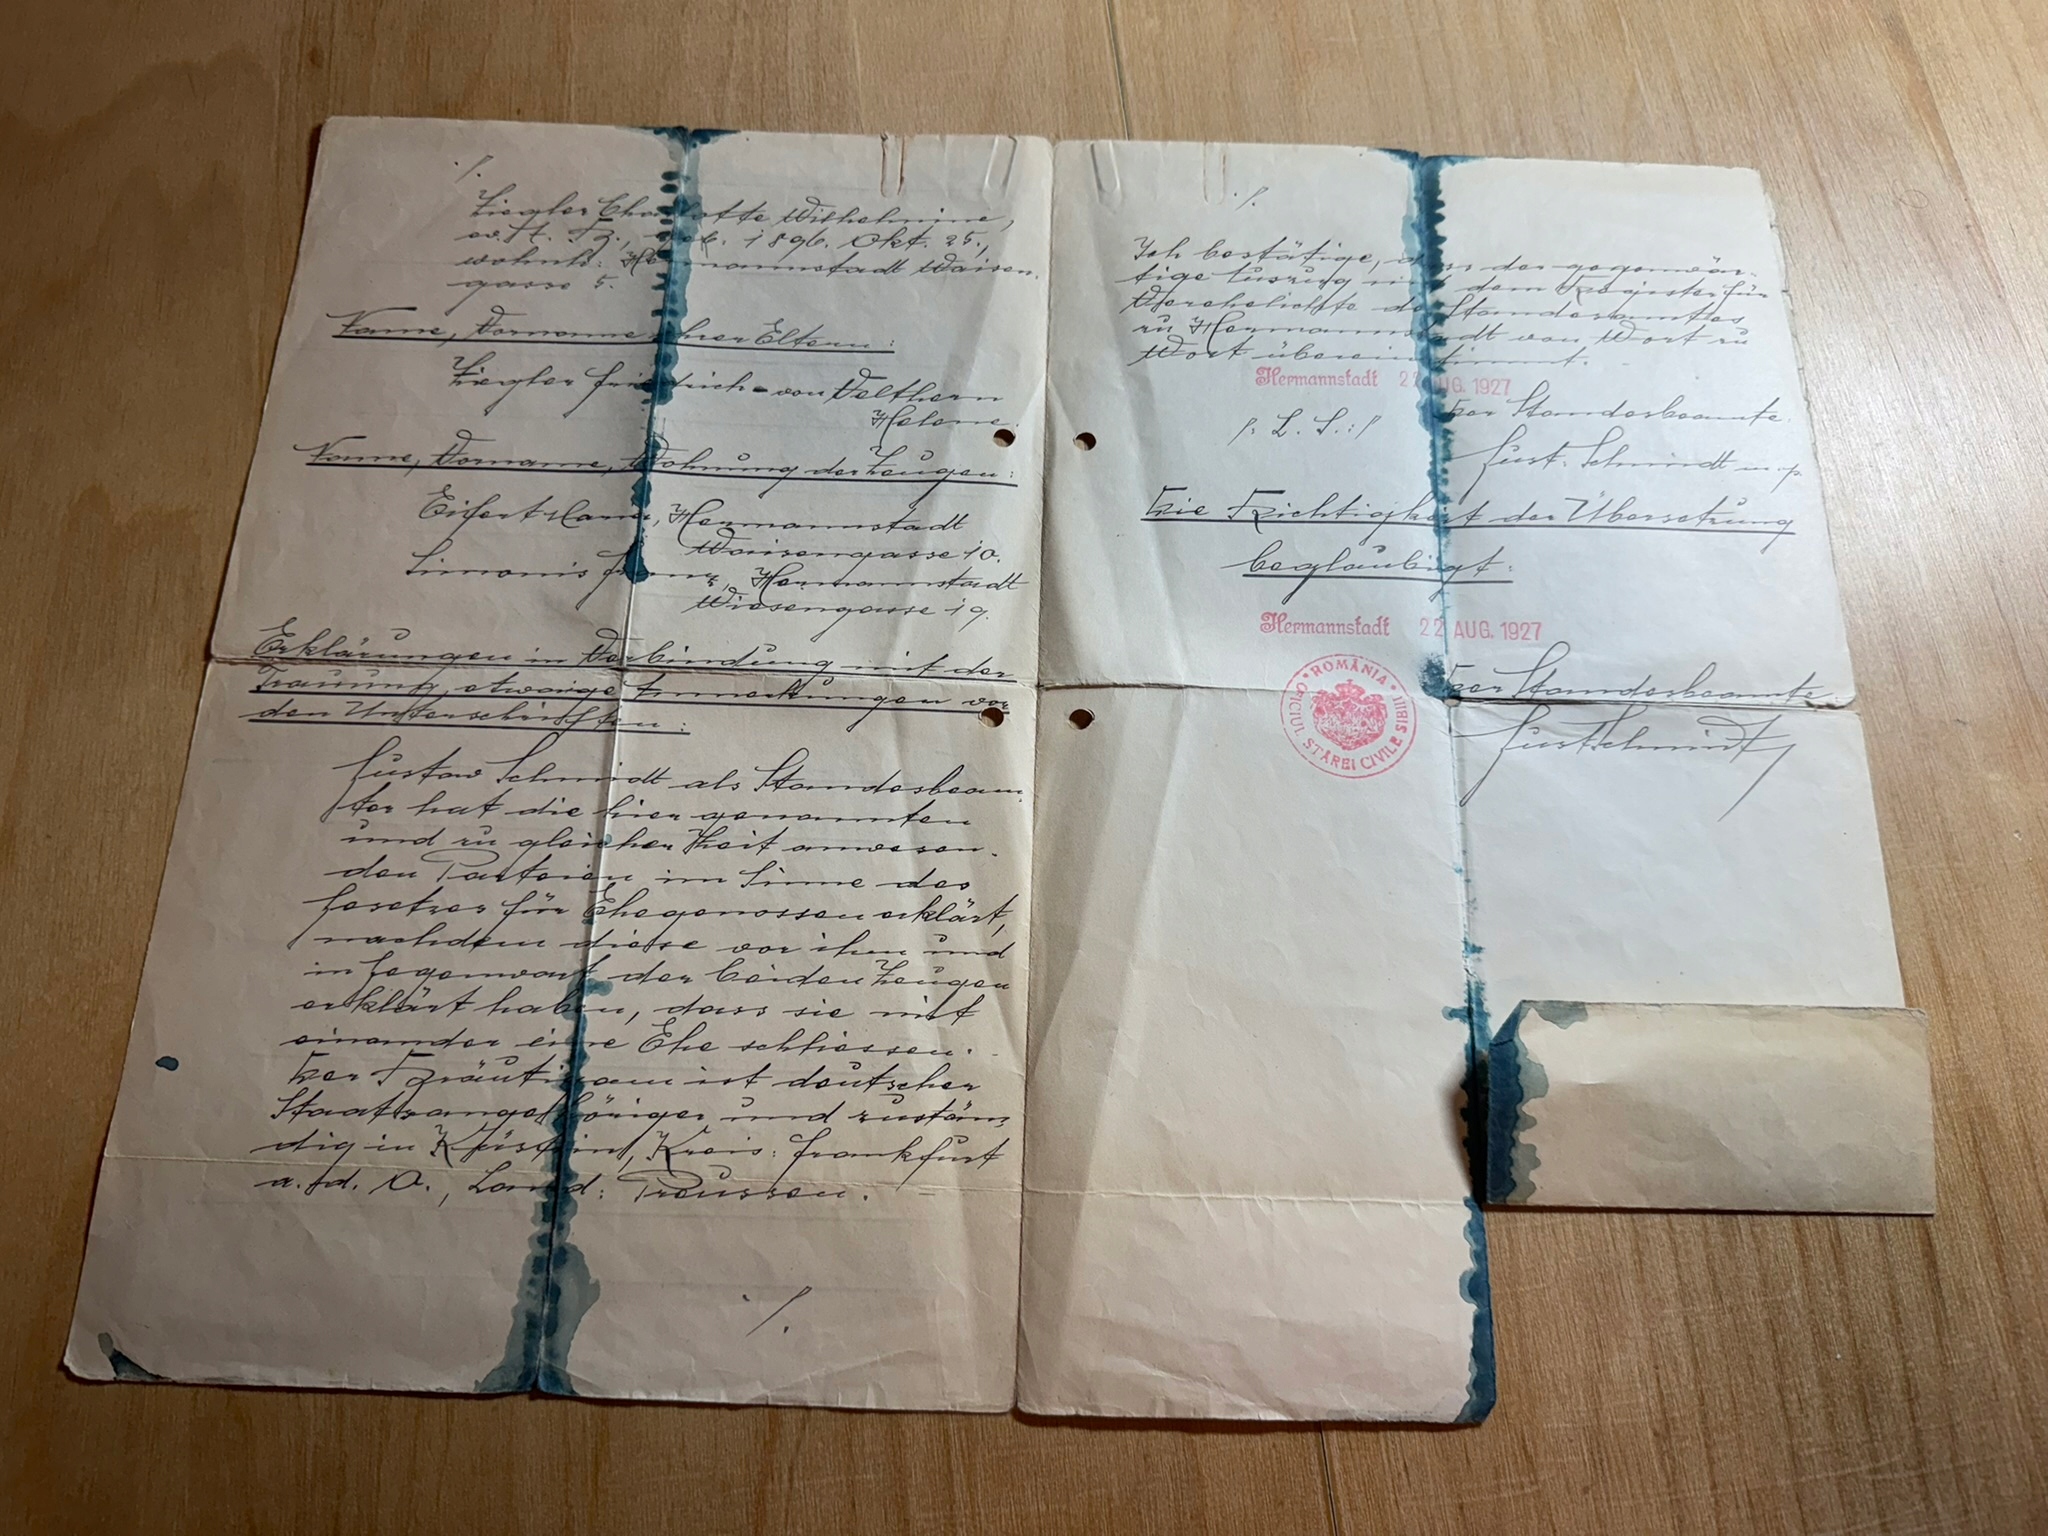 ./.
Ziegler Charlotte Wilhelmine,
ev. A. B., geb. 1896. Okt. 25.,
wohnh: Hermannstadt Waisen-
gasse 5.
Name, Vorname ihrer Eltern:
Ziegler Friedrich - von Velthern
Helene.
Name, Vorname, Wohnung der Zeugen:
Eifert Hans, Hermannstadt
Waisengasse 10.
Simonis Franz, Hermannstadt
Wiesengasse 19.
Erklärungen in Verbindung mit der
Trauung, etwaige Anmerkungen vor
den Unterschriften:
Gustav Schmidt als Standesbeam-
ter hat die hier genannten
und zu gleicher Zeit anwesen-
den Parteien im Sinne des
Gesetzes für Ehegenossen erklärt,
nachdem diese vor ihm und
in Gegenwart der beiden Zeugen
erklärt haben, dass sie mit
einander eine Ehe schliessen.
Der Bräutigam ist deutscher
Staatsangehöriger und zustän-
dig in Küstrin, Kreis: Frankfurt
a. d. O., Land: Preussen.
./.
./.
Ich bestätige, dass der gegenwär-
tige Auszug mit dem Register für
Verehelichte des Standesamtes
zu Hermannstadt von Wort zu
Wort übereinstimmt.
Hermannstadt 22 AUG. 1927
Der Standesbeamte
/: L. S. :/
Gust. Schmidt m. p.
Die Richtigkeit der Übersetzung
beglaubigt:
Hermannstadt 22 AUG. 1927
Der Standesbeamte
ROMÂNIA OFICIUL STĂREI CIVILE SIBIIU
Gust Schmidt